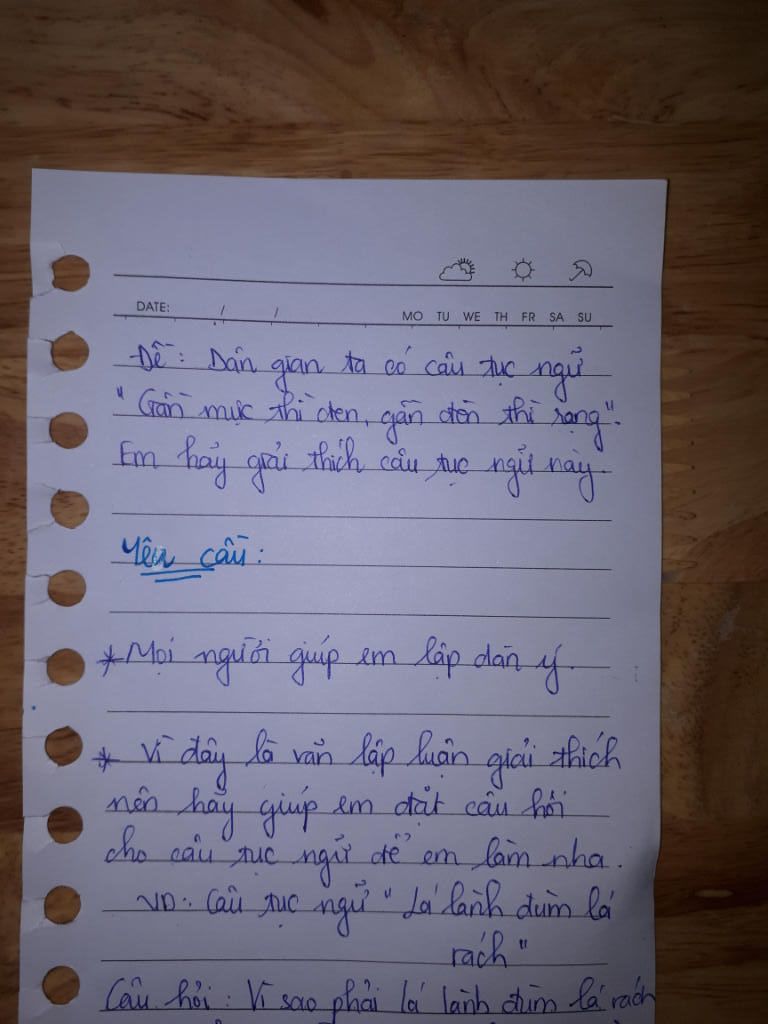 DATE: / /
MO TU WE TH FR SA SU
Đề: Dân gian ta có câu tục ngữ
"Gần mực thì đen, gần đèn thì rạng".
Em hãy giải thích câu tục ngữ này.
Yêu cầu:
* Mọi người giúp em lập dàn ý.
* Vì đây là văn lập luận giải thích
nên hãy giúp em đặt câu hỏi
cho câu tục ngữ để em làm nha.
VD: Câu tục ngữ "Lá lành đùm lá
rách"
Câu hỏi: Vì sao phải lá lành đùm lá rách